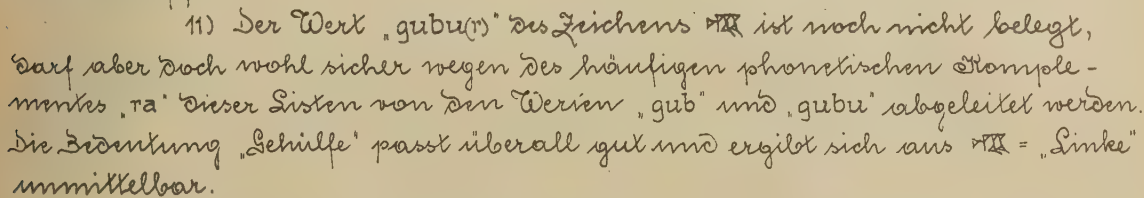 11) Der Wert „gubu(r)“ des Zeichens ist noch nicht belegt,
darf aber doch wohl sicher wegen des häufigen phonetischen Komple-
mentes „ra“ dieser Listen von den Werten „gub“ und „gubu“ abgeleitet werden.
Die Bedeutung „Gehülfe“ passt überall gut und ergibt sich aus = „Linke“
unmittelbar.